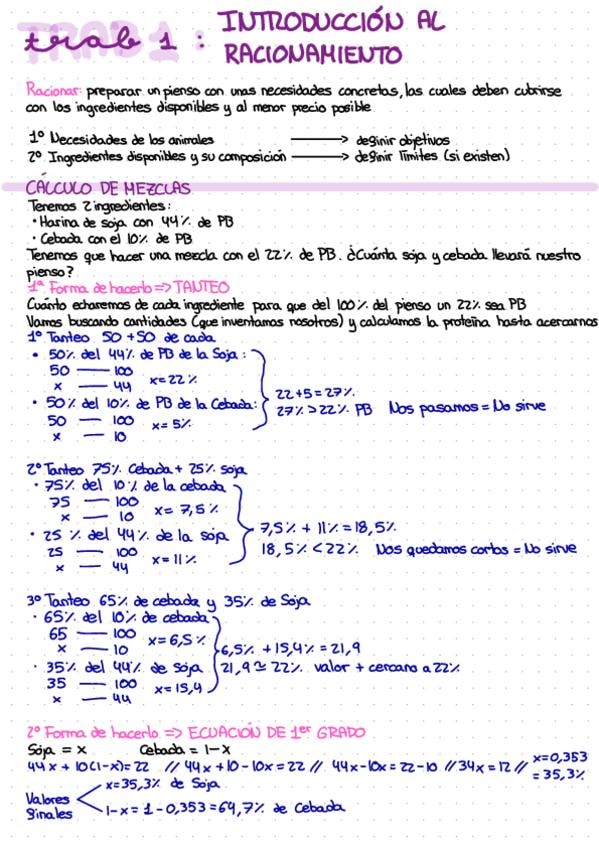 trab 1 : INTRODUCCIÓN AL
RACIONAMIENTO
Racionar: preparar un pienso con unas necesidades concretas, las cuales deben cubrirse
con los ingredientes disponibles y al menor precio posible
1º Necesidades de los animales → definir objetivos
2º Ingredientes disponibles y su composición → definir límites (si existen)
CÁLCULO DE MEZCLAS
Tenemos 2 ingredientes:
· Harina de soja con 44% de PB
· Cebada con el 10% de PB
Tenemos que hacer una mezcla con el 22% de PB. ¿Cuánta soja y cebada llevará nuestro
pienso?
1ª Forma de hacerlo => TANTEO
Cuánto echaremos de cada ingrediente para que del 100% del pienso un 22% sea PB
Vamos buscando cantidades (que inventamos nosotros) y calculamos la proteína hasta acercarnos
1º Tanteo 50 + 50 de cada
· 50% del 44% de PB de la Soja:
50 — 100
x — 44 x=22%
· 50% del 10% de PB de la Cebada:
50 — 100
x — 10 x=5%
22+5=27%
27% > 22% PB Nos pasamos = No sirve
2º Tanteo 75% Cebada + 25% soja
· 75% del 10% de la cebada
75 — 100
x — 10 x= 7,5%
· 25 % del 44% de la soja
25 — 100
x — 44 x=11%
7,5% + 11% = 18,5%
18,5% < 22% Nos quedamos cortos = No sirve
3º Tanteo 65% de cebada y 35% de Soja
· 65% del 10% de cebada
65 — 100
x — 10 x=6,5%
· 35% del 44% de Soja
35 — 100
x — 44 x=15,4
6,5% + 15,4% = 21,9
21,9 ≃ 22% valor + cercano a 22%
2º Forma de hacerlo => ECUACIÓN DE 1er GRADO
Soja = x Cebada = 1-x
44x + 10(1-x)=22 // 44x + 10 - 10x = 22 // 44x-10x = 22-10 // 34x = 12 // x=0,353
= 35,3%
Valores
finales
x=35,3% de Soja
1-x = 1 - 0,353 = 64,7% de Cebada